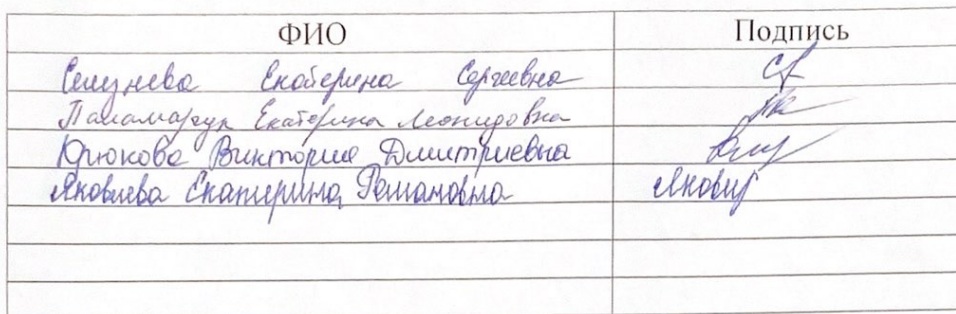 ФИО Подпись
Екатерина Сергеевна
Паламарчук Екатерина Леонидовна
Крюкова Виктория Дмитриевна
Яковлева Екатерина Романовна